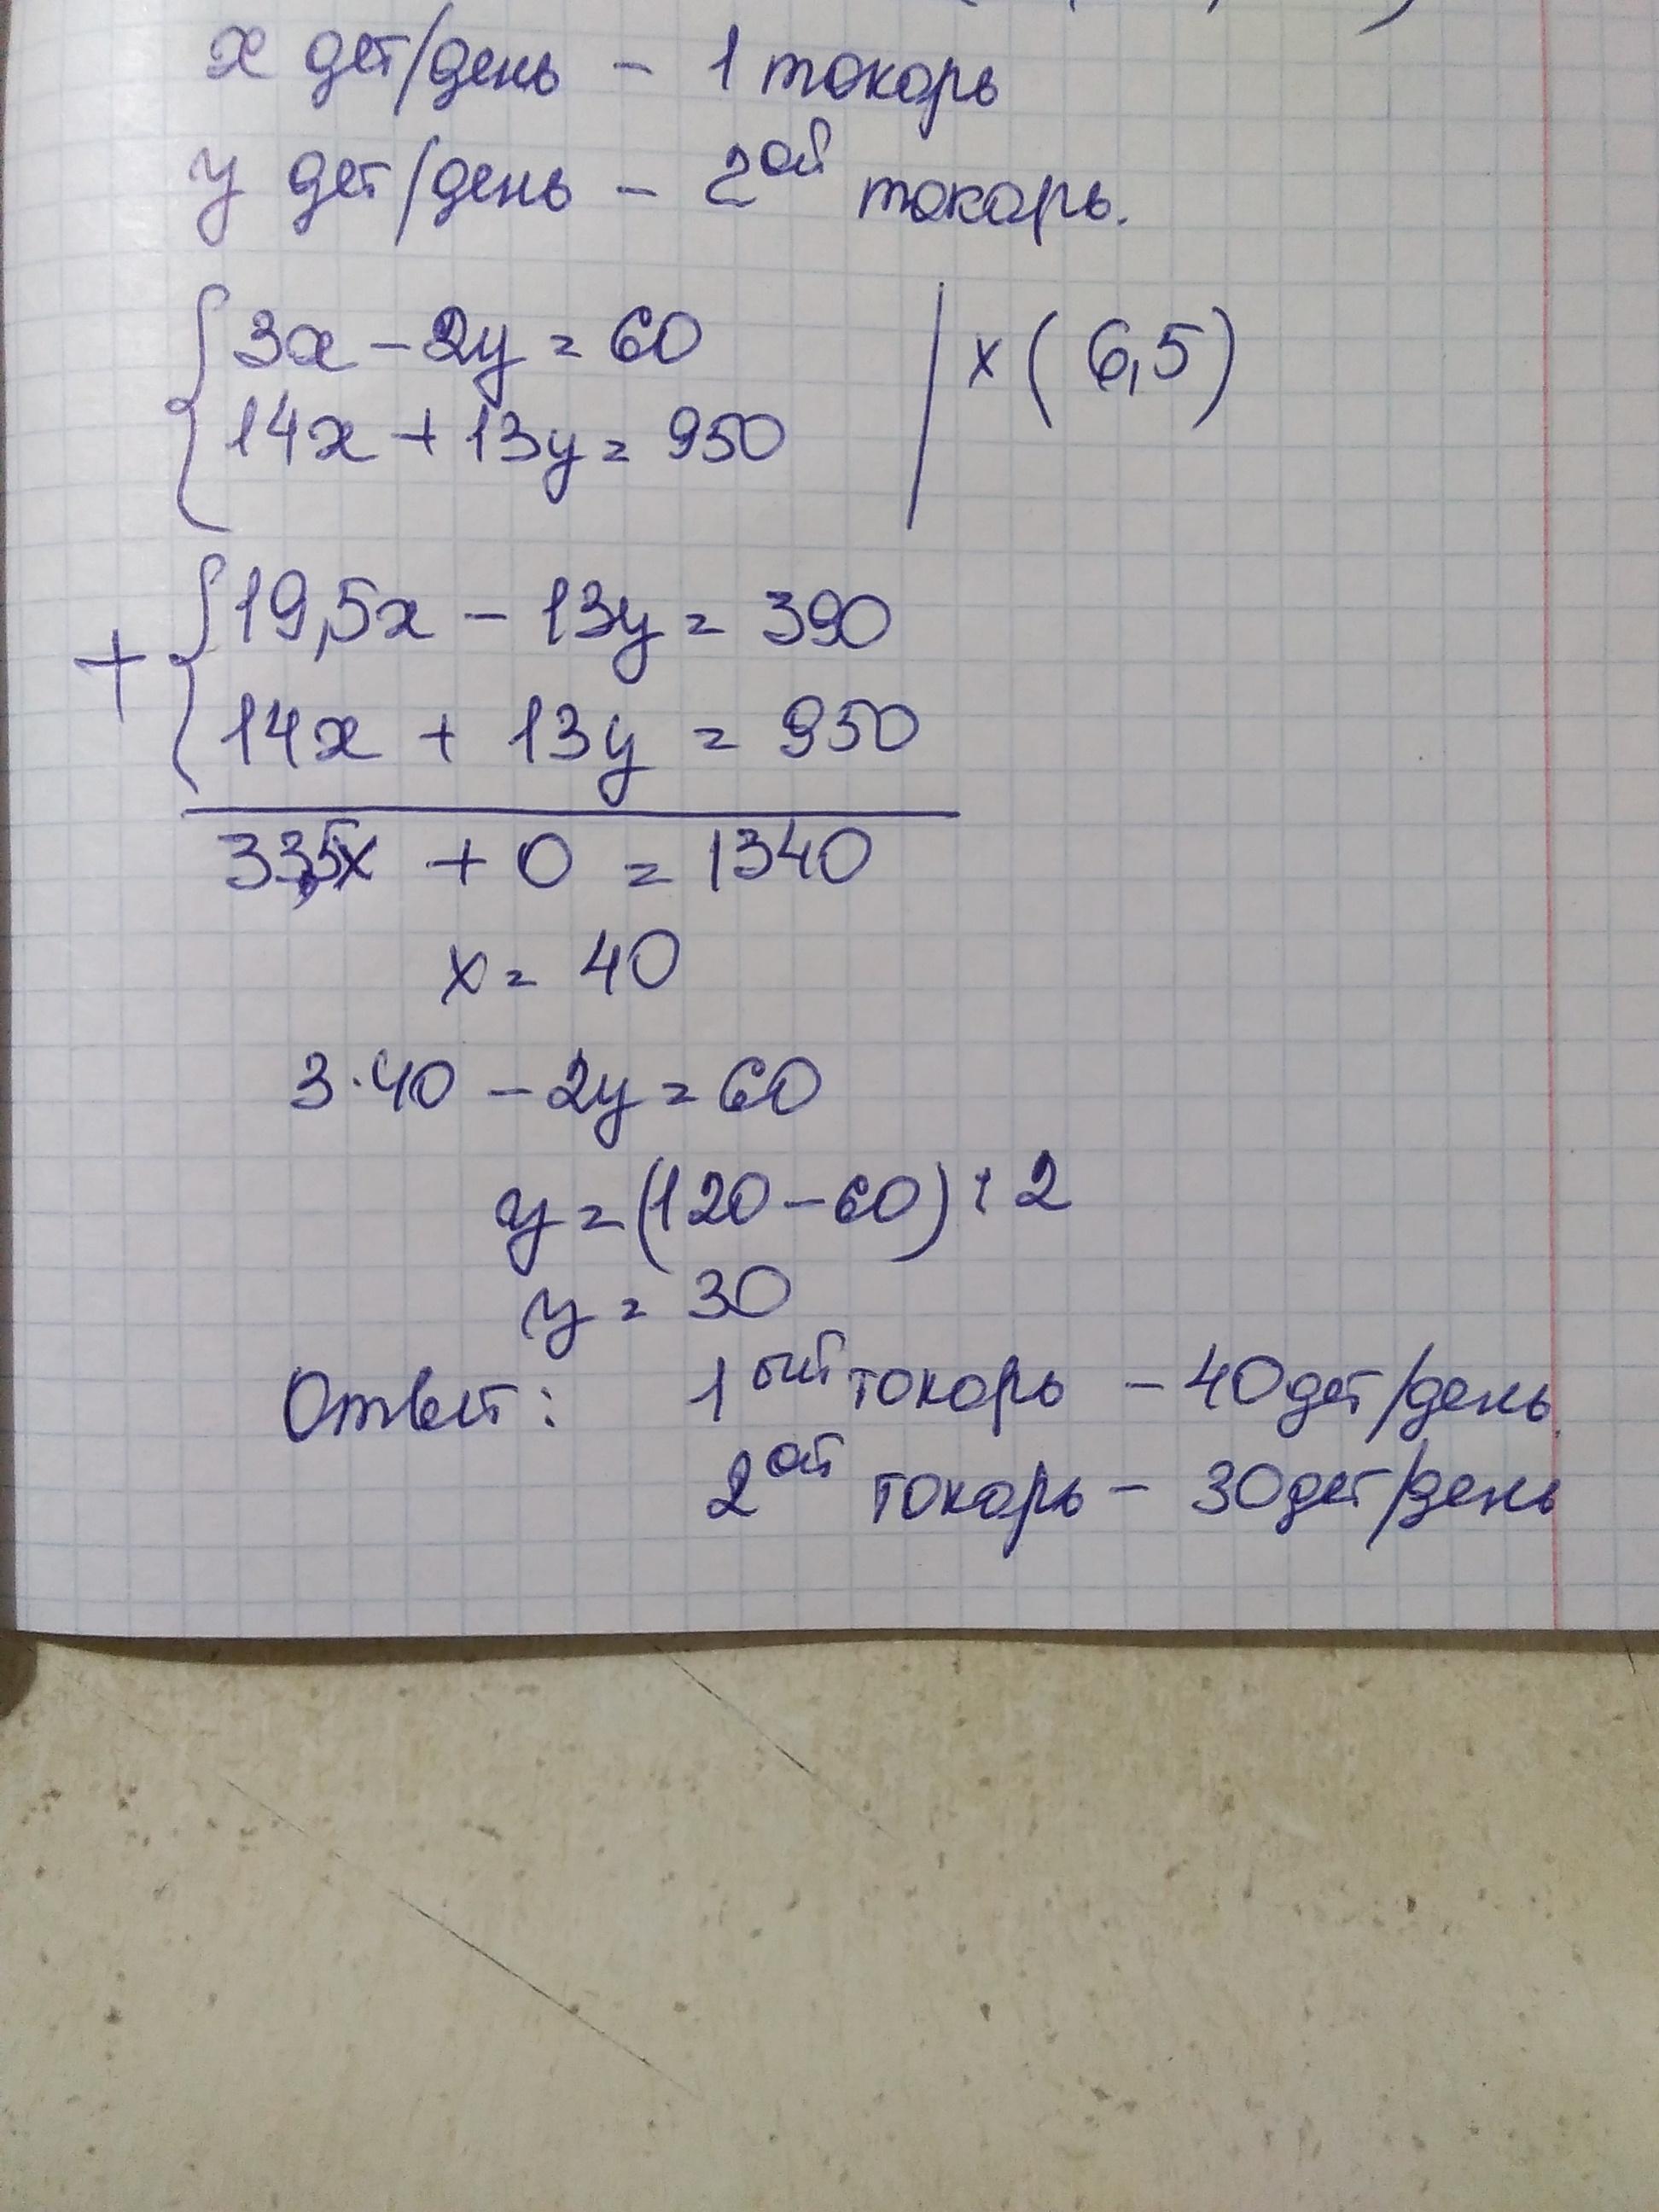 x дет/день - 1 токарь
y дет/день - 2ой токарь.
3x - 2y = 60 | x (6,5)
14x + 13y = 950
+ 19,5x - 13y = 390
14x + 13y = 950
33,5x + 0 = 1340
x = 40
3·40 - 2y = 60
y = (120 - 60) : 2
y = 30
Ответ: 1ый токарь - 40 дет/день
2ой токарь - 30 дет/день